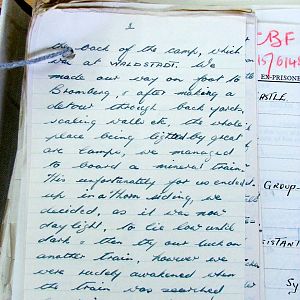 8
the back of the camp, which
was at WALDSTADT. We
made our way on foot to
Bromberg, & after making a
detour through back yards,
scaling walls etc, the whole
place being lighted by great
arc lamps, we managed
to board a mineral train.
This unfortunately for us ended
up in a Thorn siding, we
decided, as it was now
daylight, to lie low until
dark & then try our luck on
another train, however we
were rudely awakened when
the train was searched
CBF
EX-PRISONE
ASTLE
GROUP
SISTANT
Sy